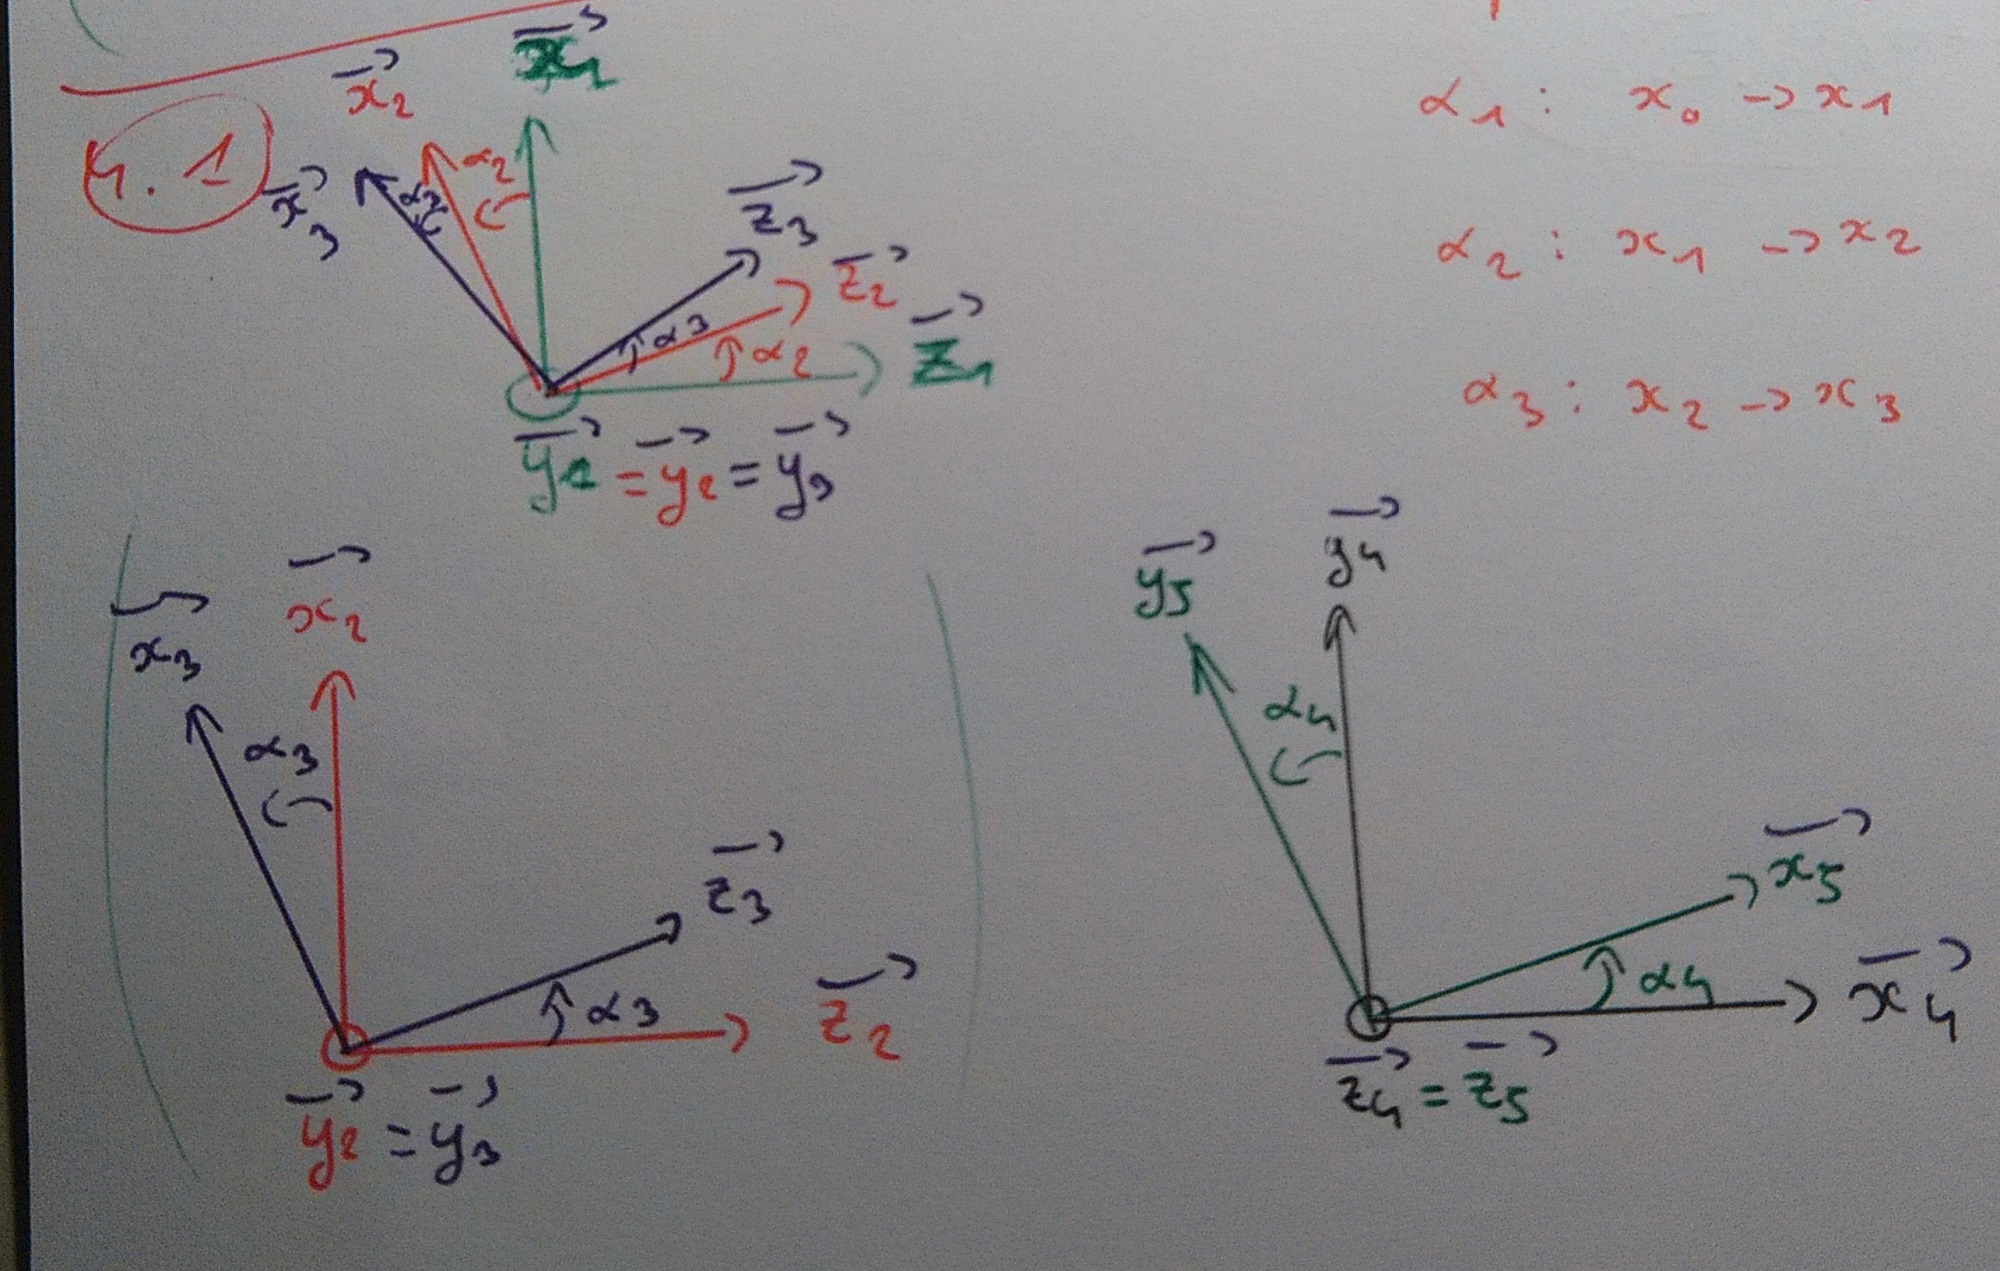 4.1
x₂
x₁
x₃
α₃
α₂
z₃
z₂
z₁
α₃
α₂
y₁ = y₂ = y₃
α₁ : x₀ → x₁
α₂ : x₁ → x₂
α₃ : x₂ → x₃
x₃
x₂
α₃
z₃
α₃
z₂
y₂ = y₃
y₅
y₄
α₄
x₅
α₄
x₄
z₄ = z₅